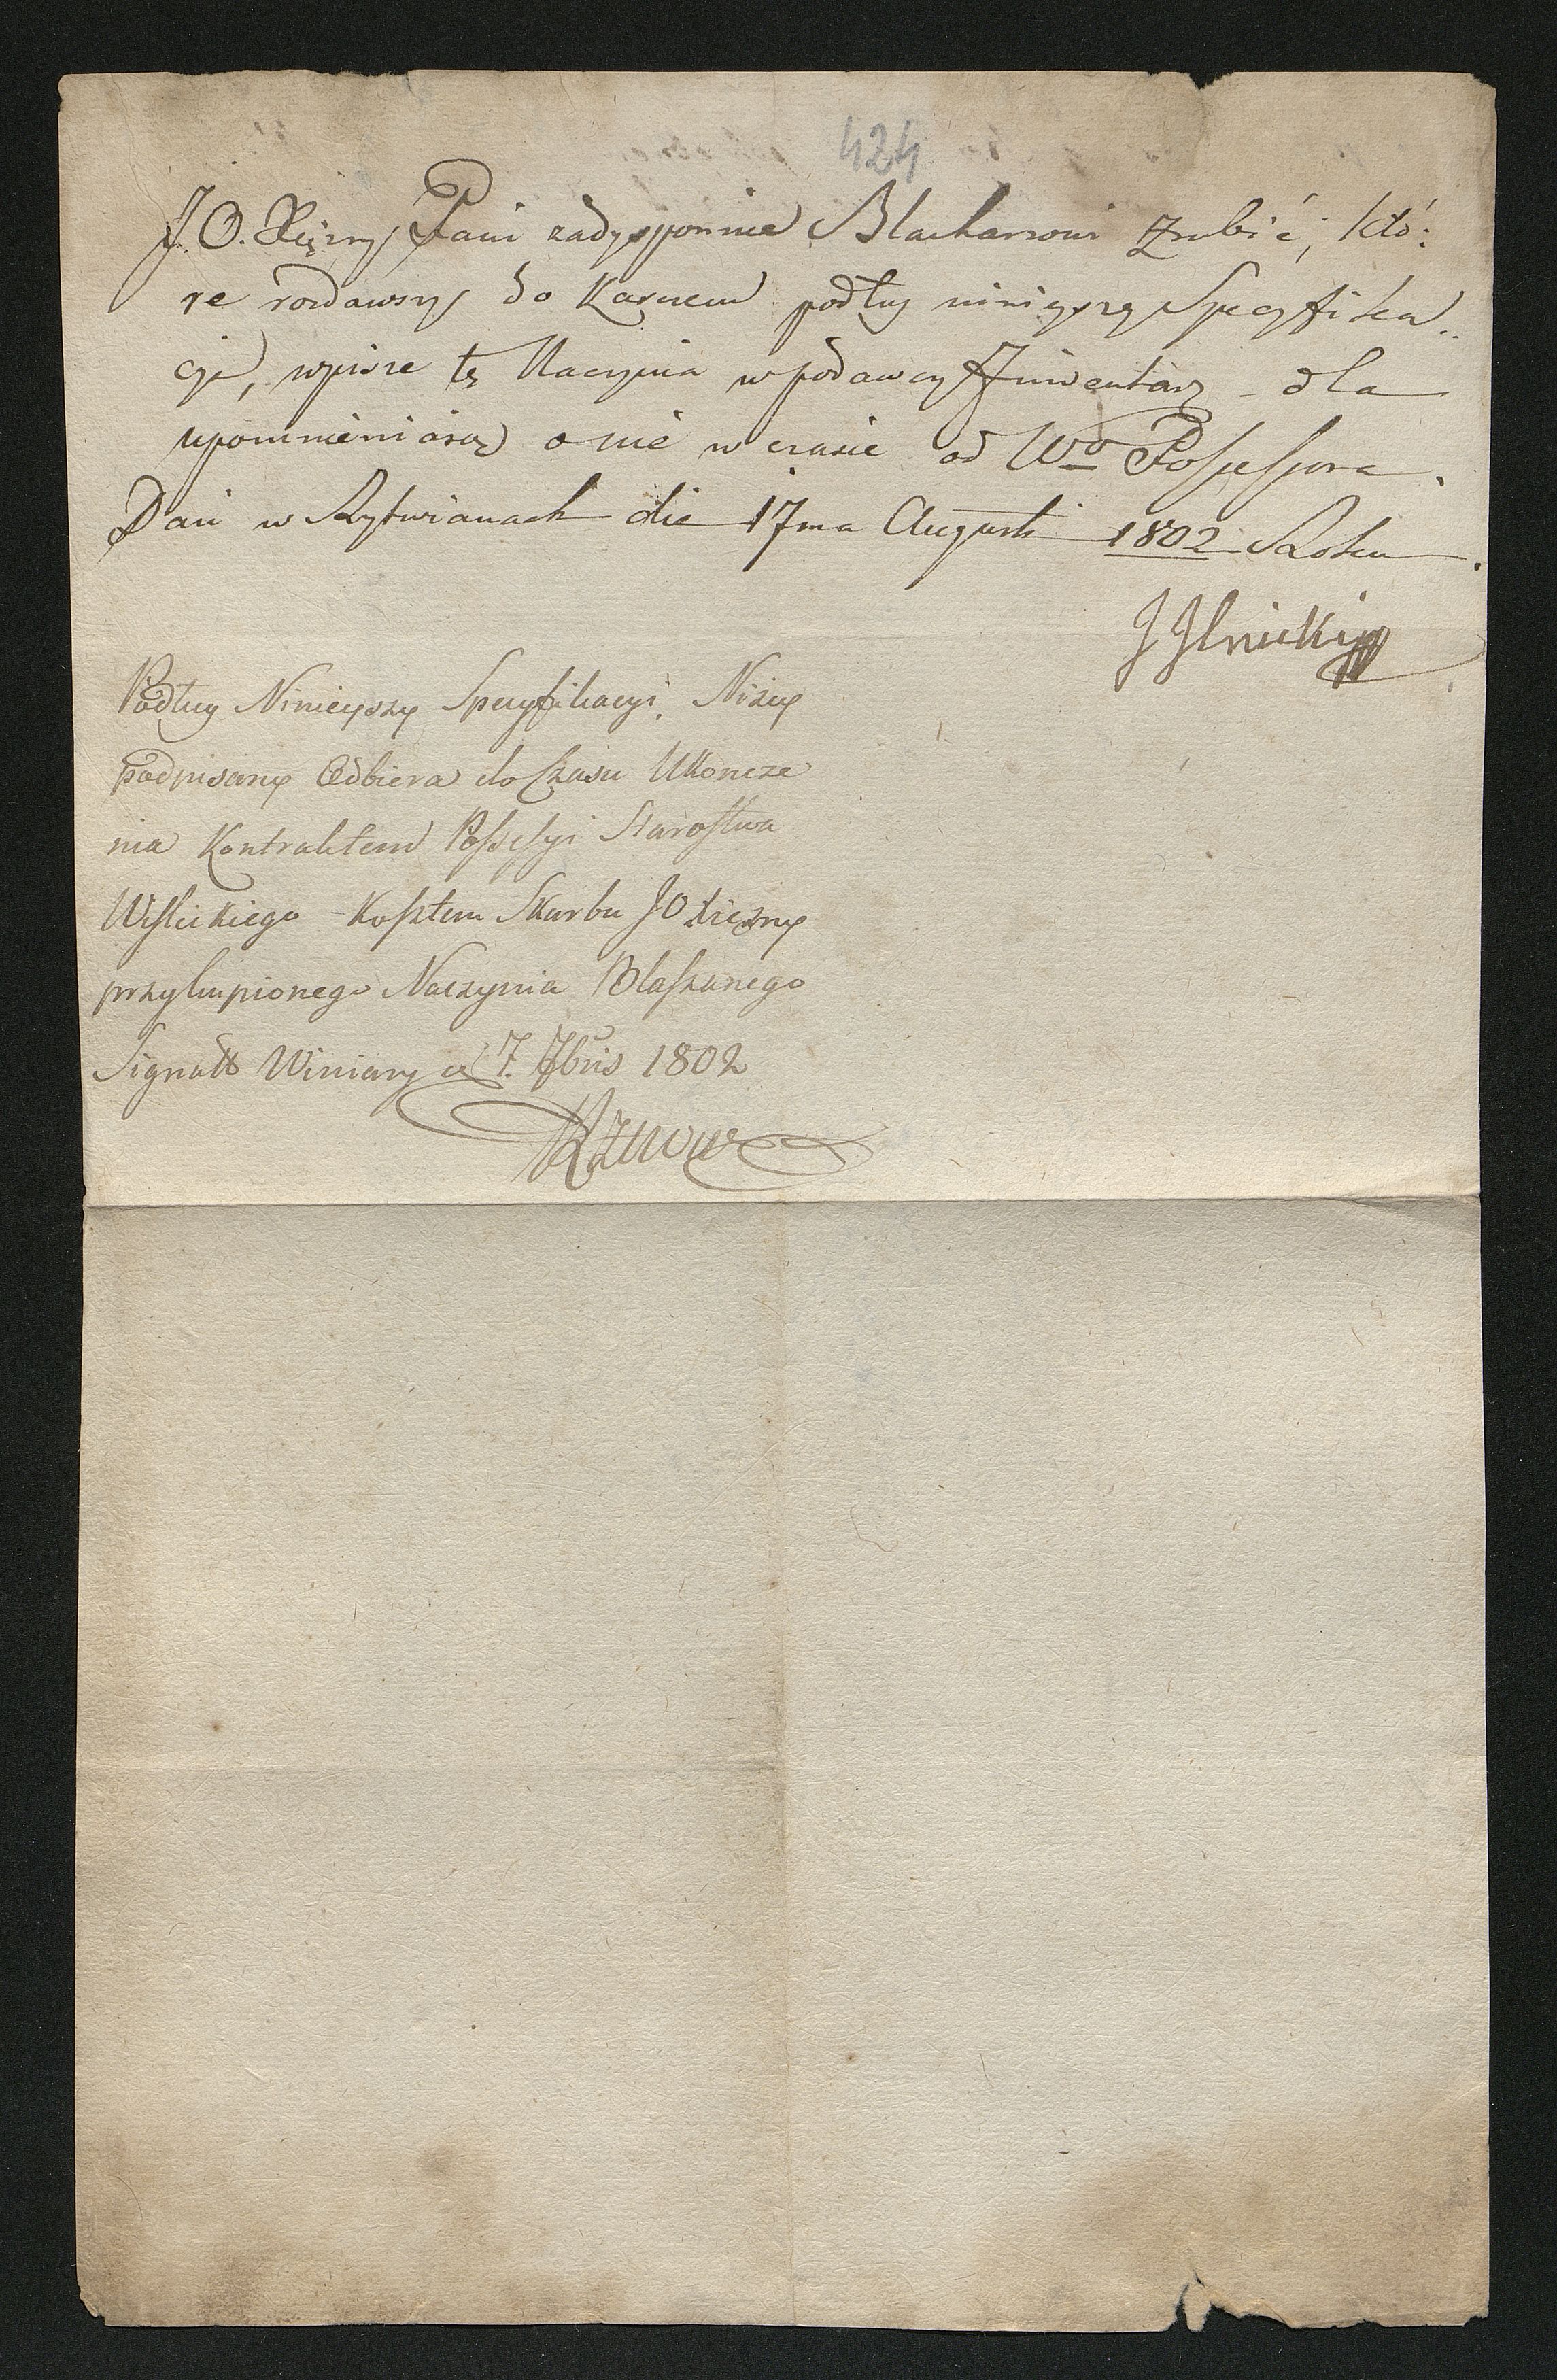 424
J. O. Xiężny Pani zadysponuie Blacharzowi zrobić, któ:
re rozdawszy do Karczem podług ninieyszy Specyfika..
cyi, wpisze tę Naczynia w podawczy Jnwentarz dla
upomnienia się o nie w czasie od Wo Possessora.
Dan w Rytwianach die 17ma Augusti 1802 Roku.
J Jlnicki
Podług Ninieyszy Specyfikacyi Niżey
podpisany Odbiera do Czasu Ukończe
nia Kontraktem Possesyi Starostwa
Wislickiego - Kosztem Skarbu JO Xiężny
przykupionego Naczynia Blaszanego
Signatt Winiary d 7. 7bris 1802